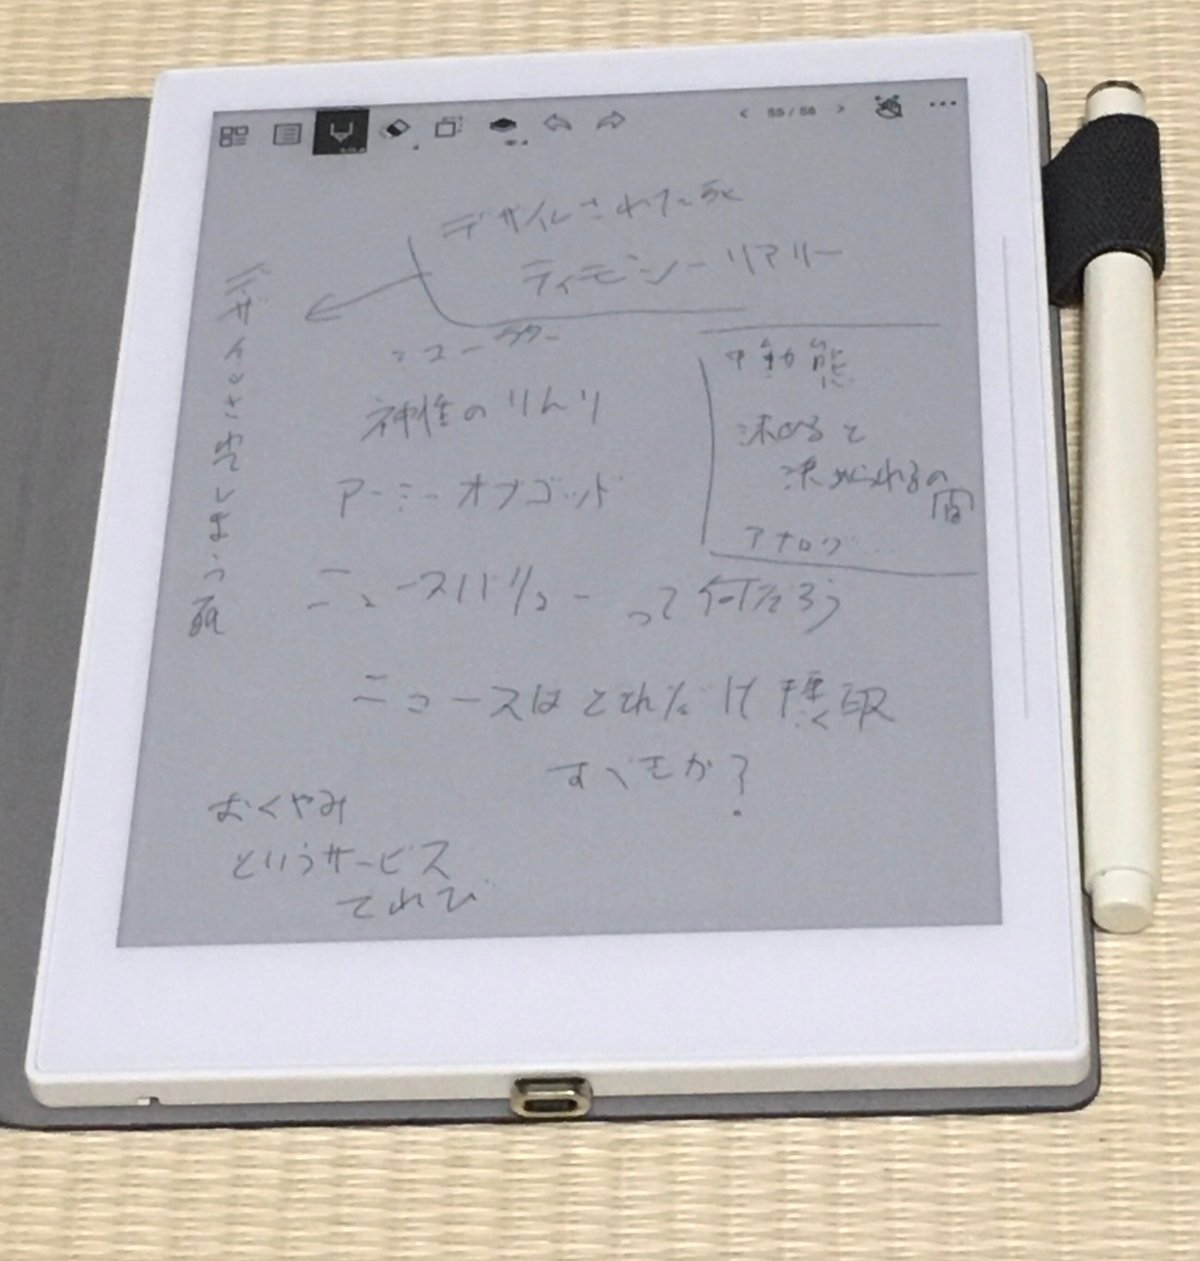 55 / 56
デザインされた死
ティモシー リアリー
デザインされてしまう死
中動態
決めると
決められるの
間
アナログ…
神性のりんり
アーミーオブゴッド
ニュースバリューって何だろう
ニュースはどれだけ摂取
すべきか?
おくやみ
というサービス
てれび